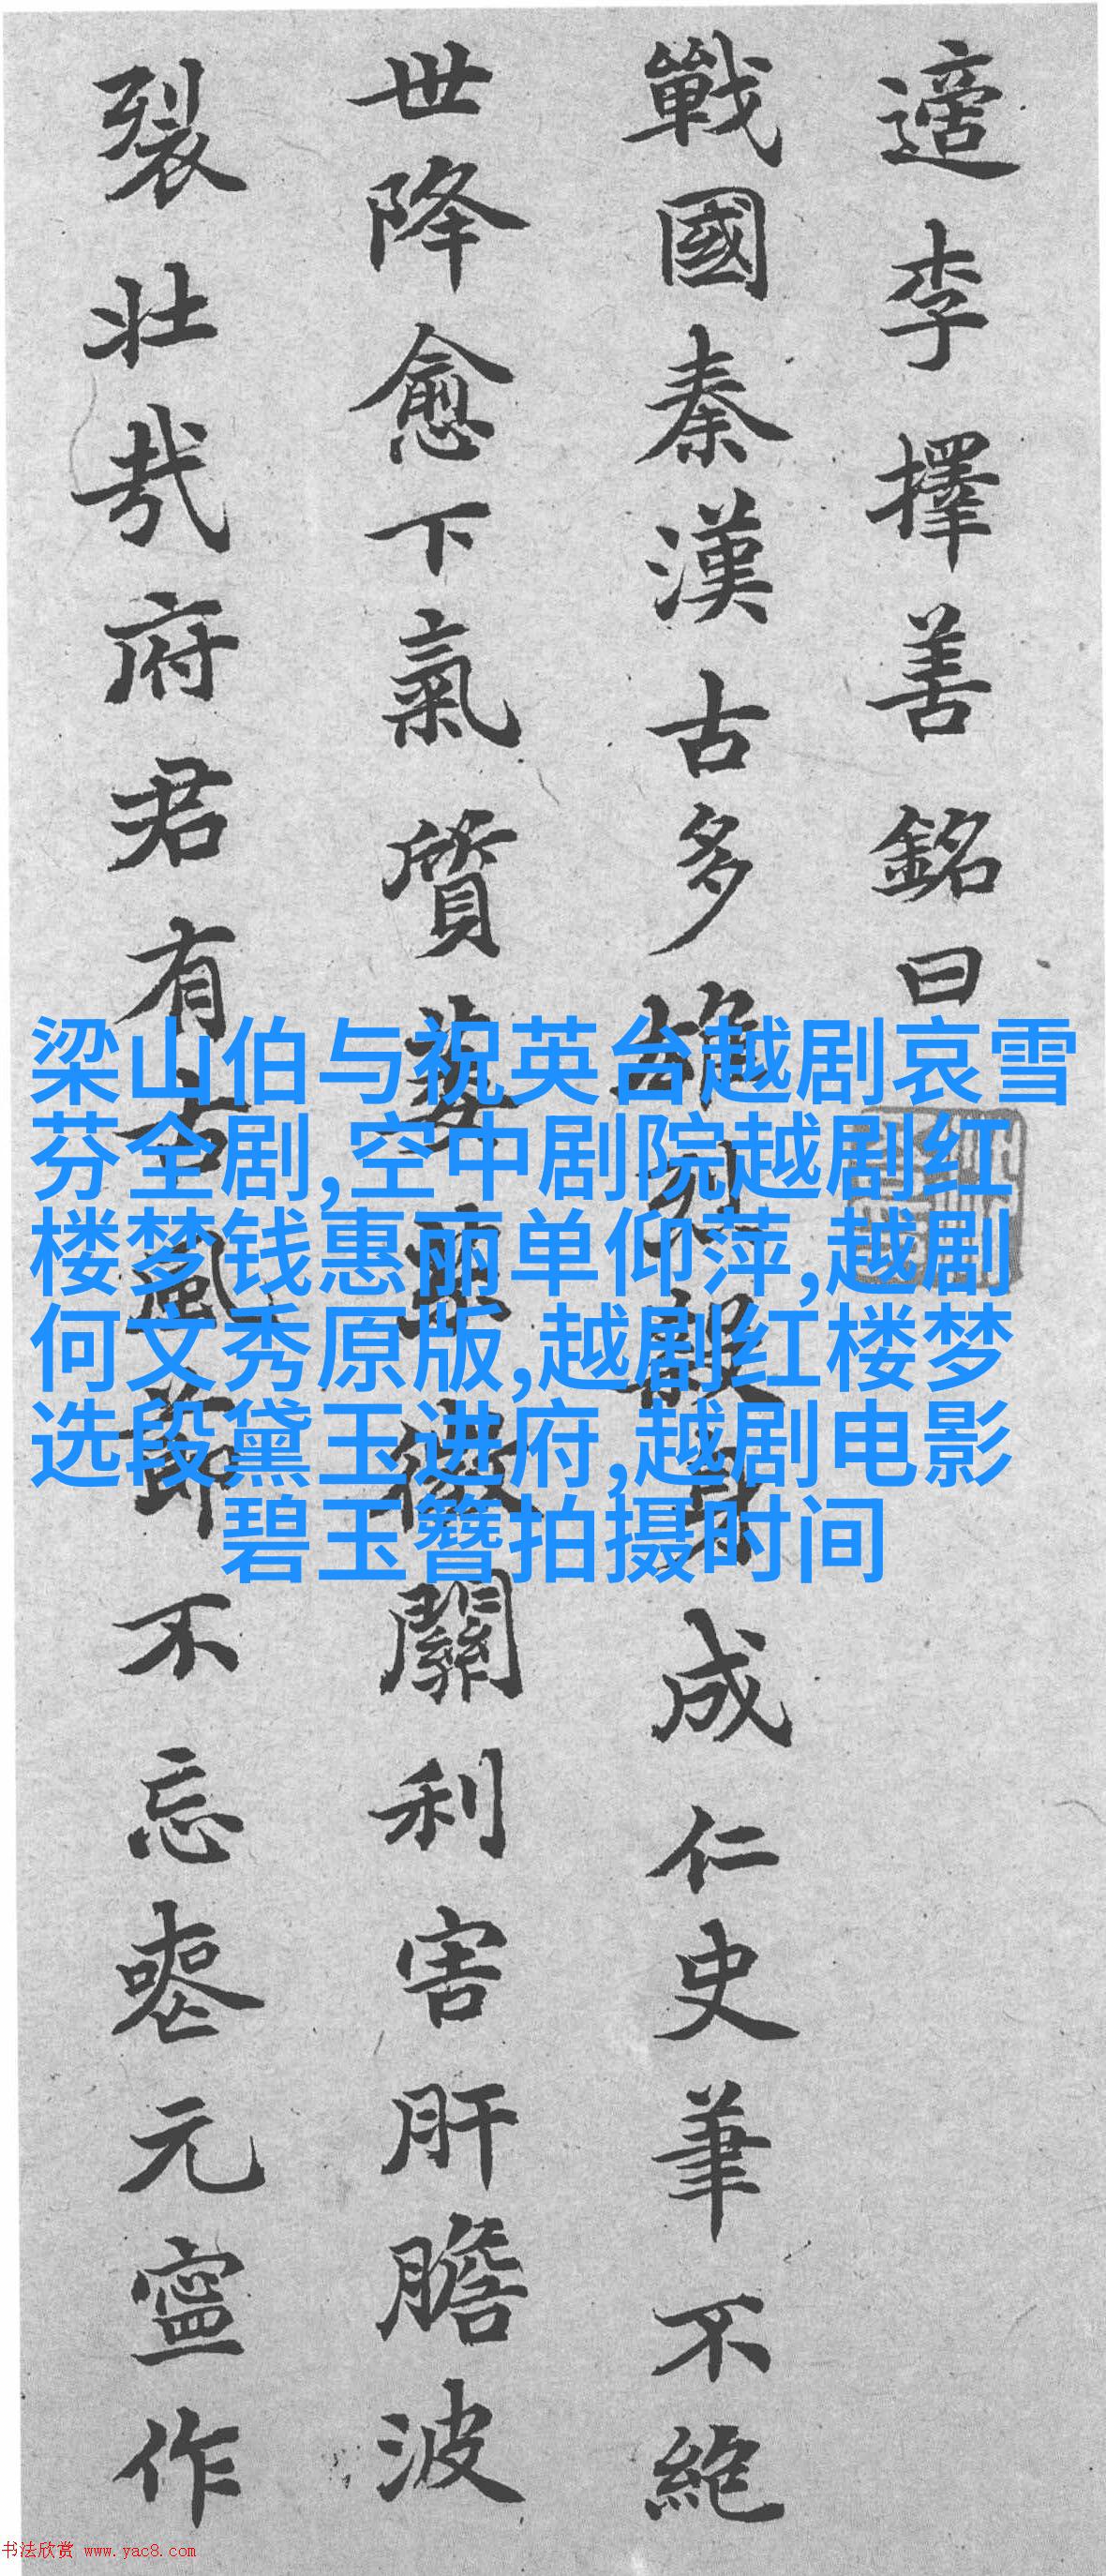 適李擇善銘曰
戰國秦漢古多雄烈殺身成仁史筆不絶
世降愈下氣質萎薾微關利害肝膽波
裂壯哉府君有古風節不忘喪元寧作
梁山伯与祝英台越剧哀雪
芬全剧,空中剧院越剧红
楼梦钱惠丽单仰萍,越剧
何文秀原版,越剧红楼梦
选段黛玉进府,越剧电影
碧玉簪拍摄时间
书法欣赏 www.yac8.com